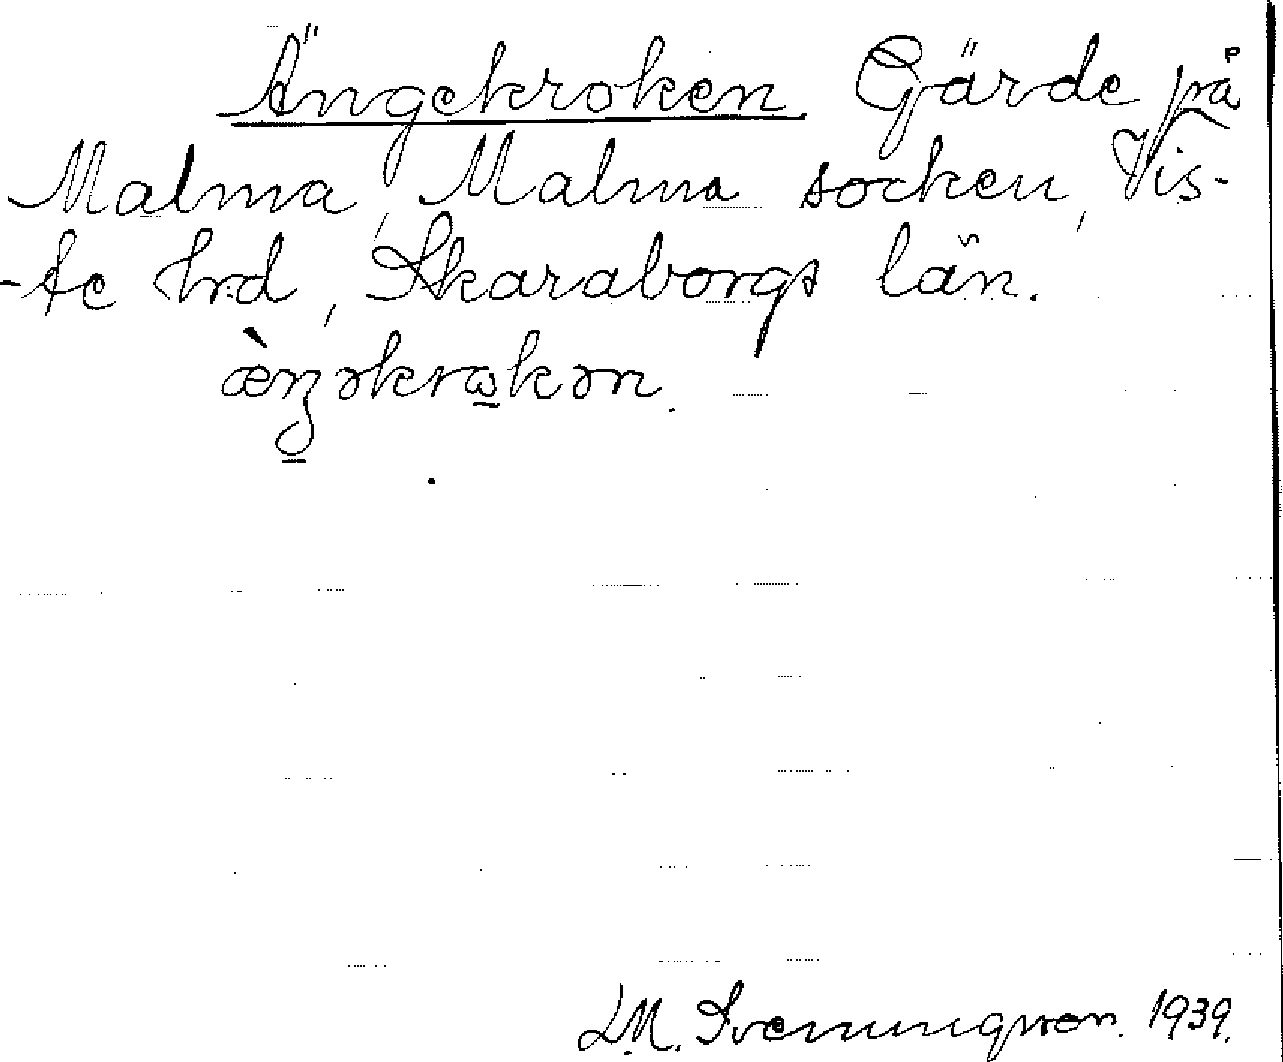 Ängekroken. Gärde på
Malma, Malma socken, Vis-
-te hrd, Skaraborgs län.
æ̀ŋəkrωkən.
D.M. Svenungsson. 1939.